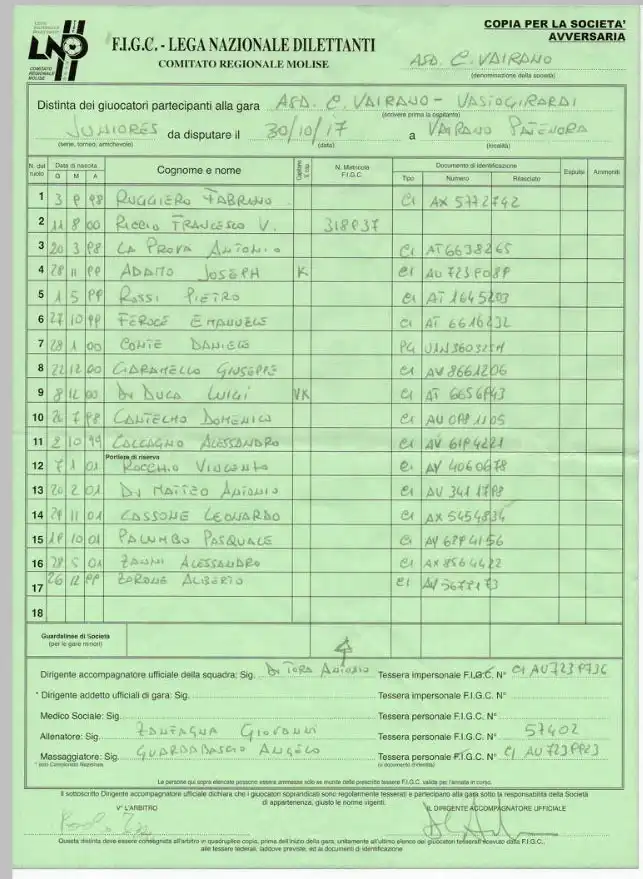 COPIA PER LA SOCIETA'
AVVERSARIA
LND
COMITATO
REGIONALE
MOLISE
F.I.G.C. - LEGA NAZIONALE DILETTANTI
COMITATO REGIONALE MOLISE
ASD. C. VAIRANO
(denominazione della società)
Distinta dei giuocatori partecipanti alla gara ASD. C. VAIRANO - VASTOGIRARDI
(scrivere prima la ospitante)
JUNIORES da disputare il 30/10/17 a VAIRANO PATENORA
(serie, torneo, amichevole) (data) (località)
N. del ruolo Data di nascita G M A Cognome e nome Capitano N. Matricola F.I.G.C. Documento di identificazione Tipo Numero Rilasciato Espulsi Ammoniti
1 3 9 98 RUGGIERO FABRIZIO CI AX 5772742
2 11 8 00 RICCIO FRANCESCO V. 318937
3 20 3 98 LA PROVA ANTONIO CI AT6638265
4 28 11 99 ADAMO JOSEPH K CI AU 7239089
5 1 5 99 ROSSI PIETRO CI AT 1645203
6 27 10 99 FEROCE EMANUELE CI AT 6616232
7 28 1 00 CONTE DANIELE PG
8 22 12 00 GIUSEPPE CI AV 8661206
9 8 12 00 DI DUCA LUIGI VK CI AT 6656943
10 26 7 98 CANTELMO DOMENICO CI AU 0991105
11 2 10 99 CALCAGNO ALESSANDRO CI AV 6194221
Portiere di riserva
12 7 1 01 ROCCHIO VINCENZO CI AY 4060678
13 20 2 01 DI MATTEO ANTONIO CI AU 3411798
14 29 11 01 CASSONE LEONARDO CI AX 5454834
15 19 10 01 PALUMBO PASQUALE CI AY 6294156
16 28 5 01 ZANNI ALESSANDRO CI AX 8564422
17 26 12 99 ZARONE ALBERTO CI AV 3679173
18
Guardalinee di Società
(per le gare minori)
Dirigente accompagnatore ufficiale della squadra: Sig. DI TORA ANTONIO Tessera impersonale F.I.G.C. N° CI AU7239736
* Dirigente addetto ufficiali di gara: Sig. Tessera impersonale F.I.G.C. N°
Medico Sociale: Sig. Tessera personale F.I.G.C. N°
Allenatore: Sig. GIOVANNI Tessera personale F.I.G.C. N° 57402
Massaggiatore: Sig. GUARDABASCIO ANGELO Tessera personale F.I.G.C. N° CI AU7239923
(o documento d'identità)
Le persone qui sopra elencate possono essere ammesse solo se munite delle prescritte tessere F.I.G.C. valide per l'annata in corso.
Il sottoscritto Dirigente accompagnatore ufficiale dichiara che i giuocatori sopraindicati sono regolarmente tesserati e partecipano alla gara sotto la responsabilità della Società
di appartenenza, giusto le norme vigenti.
V° L'ARBITRO IL DIRIGENTE ACCOMPAGNATORE UFFICIALE
Questa distinta deve essere consegnata all'arbitro in quadruplice copia, prima dell'inizio della gara, unitamente all'ultimo elenco dei giuocatori tesserati ricevuto dalla F.I.G.C.,
alle tessere federali, laddove previste, ed ai documenti di identificazione